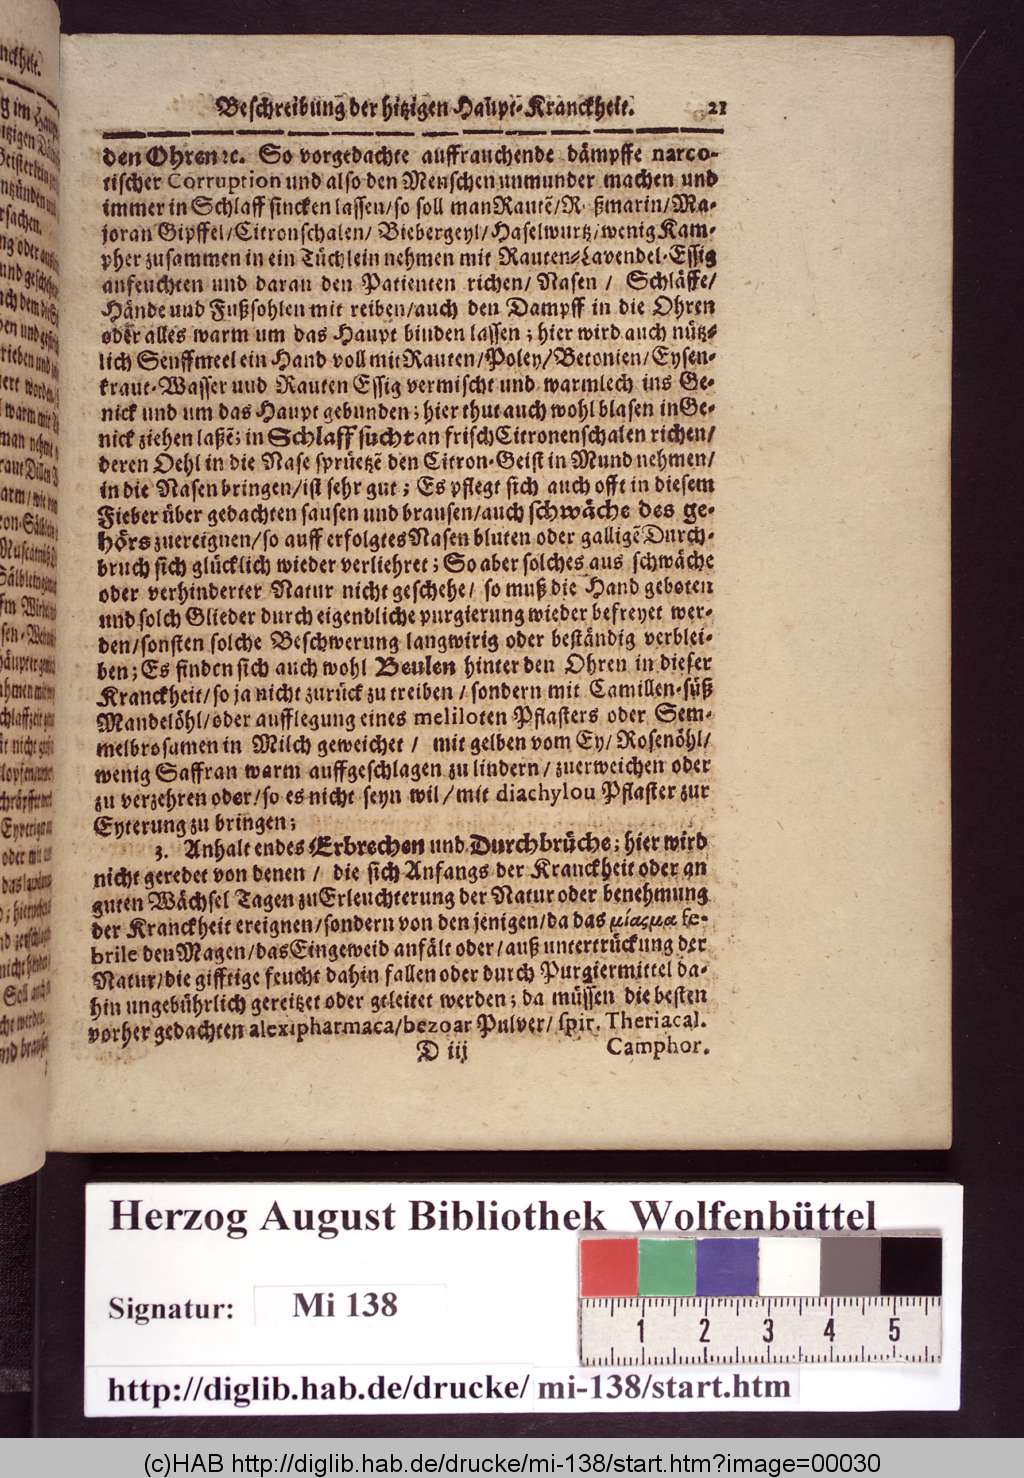 Beschreibung der hitzigen Haupt-Kranckheit. 21
den Ohren ꝛc. So vorgedachte auffrauchende dämpffe narco-
tischer Corruption und also den Menschen unmunder machen und
immer in Schlaff sincken lassen/so soll man Rautẽ/R. ßmarin/Ma-
joran Gipffel/Citronschalen/ Biebergeyl/Haselwurtz/wenig Kam-
pher zusammen in ein Tüchlein nehmen mit Rauten-Lavendel-Essig
anfeuchten und daran den Patienten richen/ Nasen / Schläffe/
Hände und Fußsohlen mit reiben/auch den Dampff in die Ohren
oder alles warm um das Haupt binden lassen ; hier wird auch nütz-
lich Senffmeel ein Hand voll mit Rauten/Poley/Betonien/Eysen-
kraut-Wasser und Rauten Essig vermischt und warmlech ins Ge-
nick und um das Haupt gebunden; hier thut auch wohl blasen in Ge-
nick ziehen laßẽ; in Schlaffsucht an frisch Citronenschalen richen/
deren Oehl in die Nase sprüetzẽ den Citron-Geist in Mund nehmen/
in die Nasen bringen/ist sehr gut ; Es pflegt sich auch offt in diesem
Fieber über gedachten sausen und brausen/auch schwäche des ge-
hörs zuereignen/so auff erfolgtes Nasen bluten oder galligẽ Durch-
bruch sich glücklich wieder verliehret; So aber solches aus schwäche
oder verhinderter Natur nicht geschehe/ so muß die Hand geboten
und solch Glieder durch eigendliche purgierung wieder befreyet wer-
den/sonsten solche Beschwerung langwirig oder beständig verblei-
ben; Es finden sich auch wohl Beulen hinter den Ohren in dieser
Kranckheit/so ja nicht zurück zu treiben / sondern mit Camillen-süß
Mandelöhl/oder aufflegung eines meliloten Pflasters oder Sem-
melbrosamen in Milch geweichet / mit gelben vom Ey/ Rosenöhl/
wenig Saffran warm auffgeschlagen zu lindern/ zuerweichen oder
zu verzehren oder/so es nicht seyn wil/mit diachylou Pflaster zur
Eyterung zu bringen;
3. Anhaltendes Erbrechen und Durchbrüche; hier wird
nicht geredet von denen / die sich Anfangs der Kranckheit oder an
guten Wächsel Tagen zu Erleuchterung der Natur oder benehmung
der Kranckheit ereignen/sondern von den jenigen/da das μίασμα fe-
brile den Magen/das Eingeweid anfält oder/auß untertrückung der
Natur/die gifftige feucht dahin fallen oder durch Purgiermittel da-
hin ungebührlich gereitzet oder geleitet werden; da müssen die besten
vorher gedachten alexipharmaca/bezoar Pulver/ spir. Theriacal.
D iij Camphor.
Herzog August Bibliothek Wolfenbüttel
Signatur: Mi 138
1 2 3 4 5
http://diglib.hab.de/drucke/ mi-138/start.htm
(c)HAB http://diglib.hab.de/drucke/mi-138/start.htm?image=00030